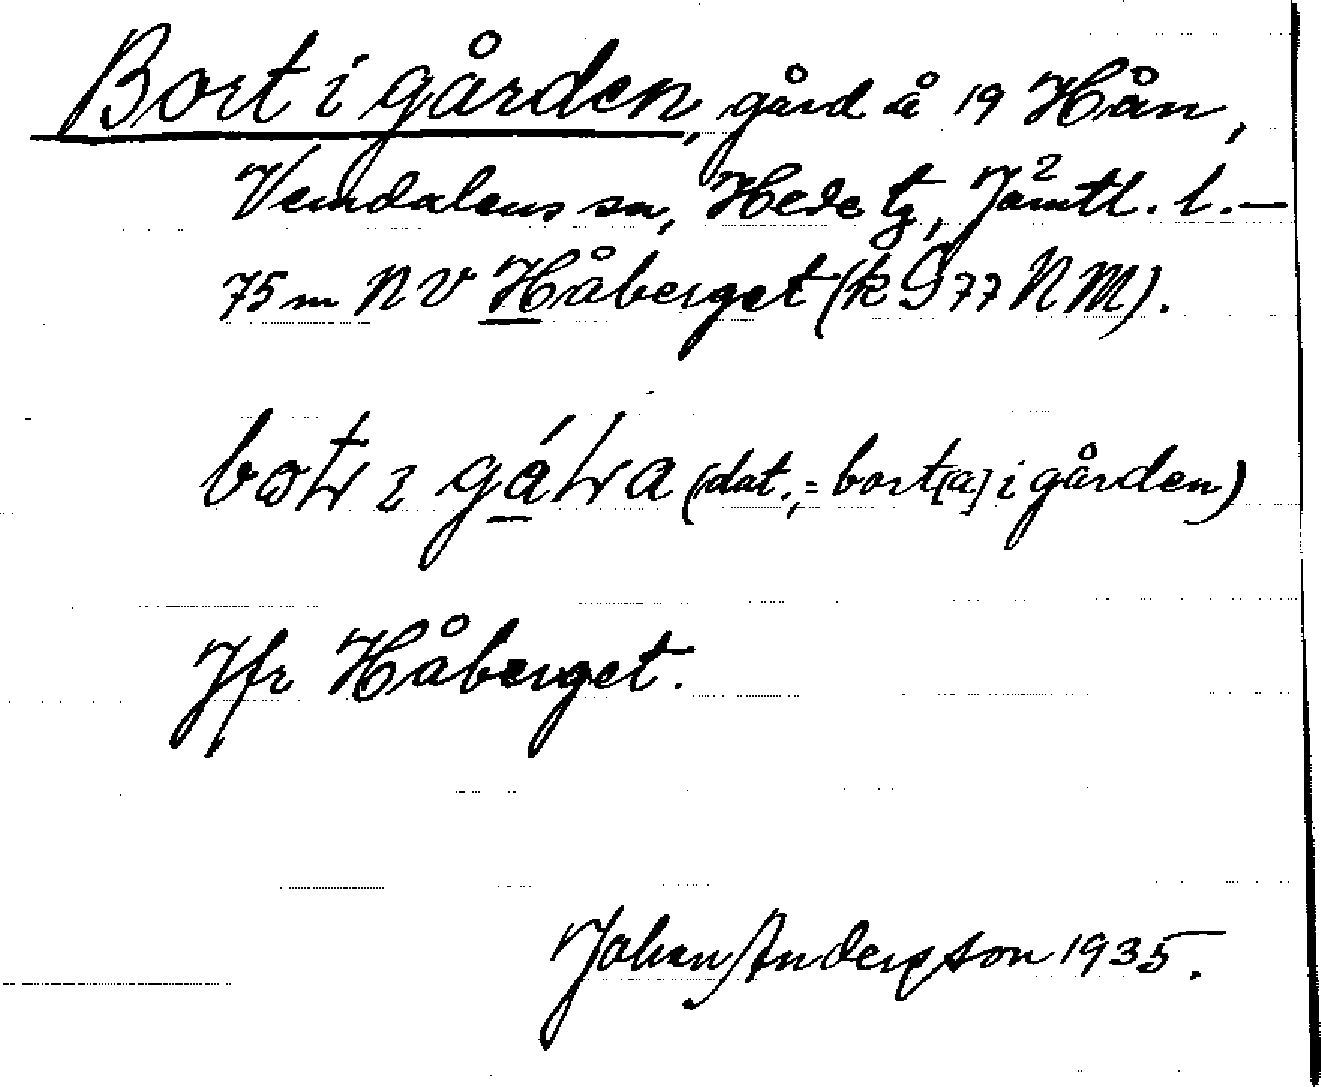 Bort i gården, gård å 19 Hån,
Vemdalens sn, Hede tg, Jämtl. l. —
75 m NV Håberget (k G 77 NM).
(dat., = bort[a] i gården)
Jfr Håberget.
Johan Andersson 1935.